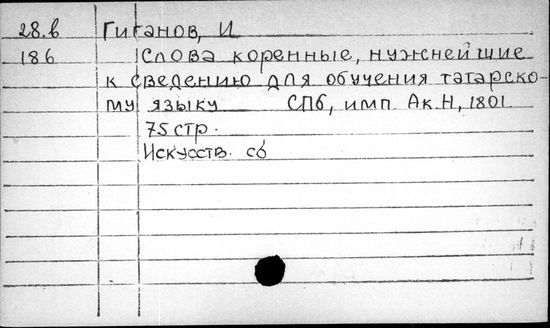 28.в Гиганов, И
186 Слова коренные, нужнейшие
к сведению для обучения татарско-
му языку СПб, имп. Ак.Н, 1801.
75 стр.
Искусств. сб